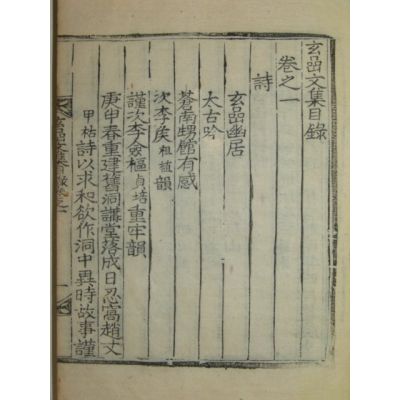 玄嵒文集目錄
卷之一
詩
玄嵒幽居
太古吟
蒼南甥館有感
次李矦祖植韻
謹次李僉樞貞培重牢韻
庚申春重建舊洞講堂落成日忍窩趙丈
甲祜詩以求和欲作洞中異時故事謹
玄嵒文集目錄卷之一
一